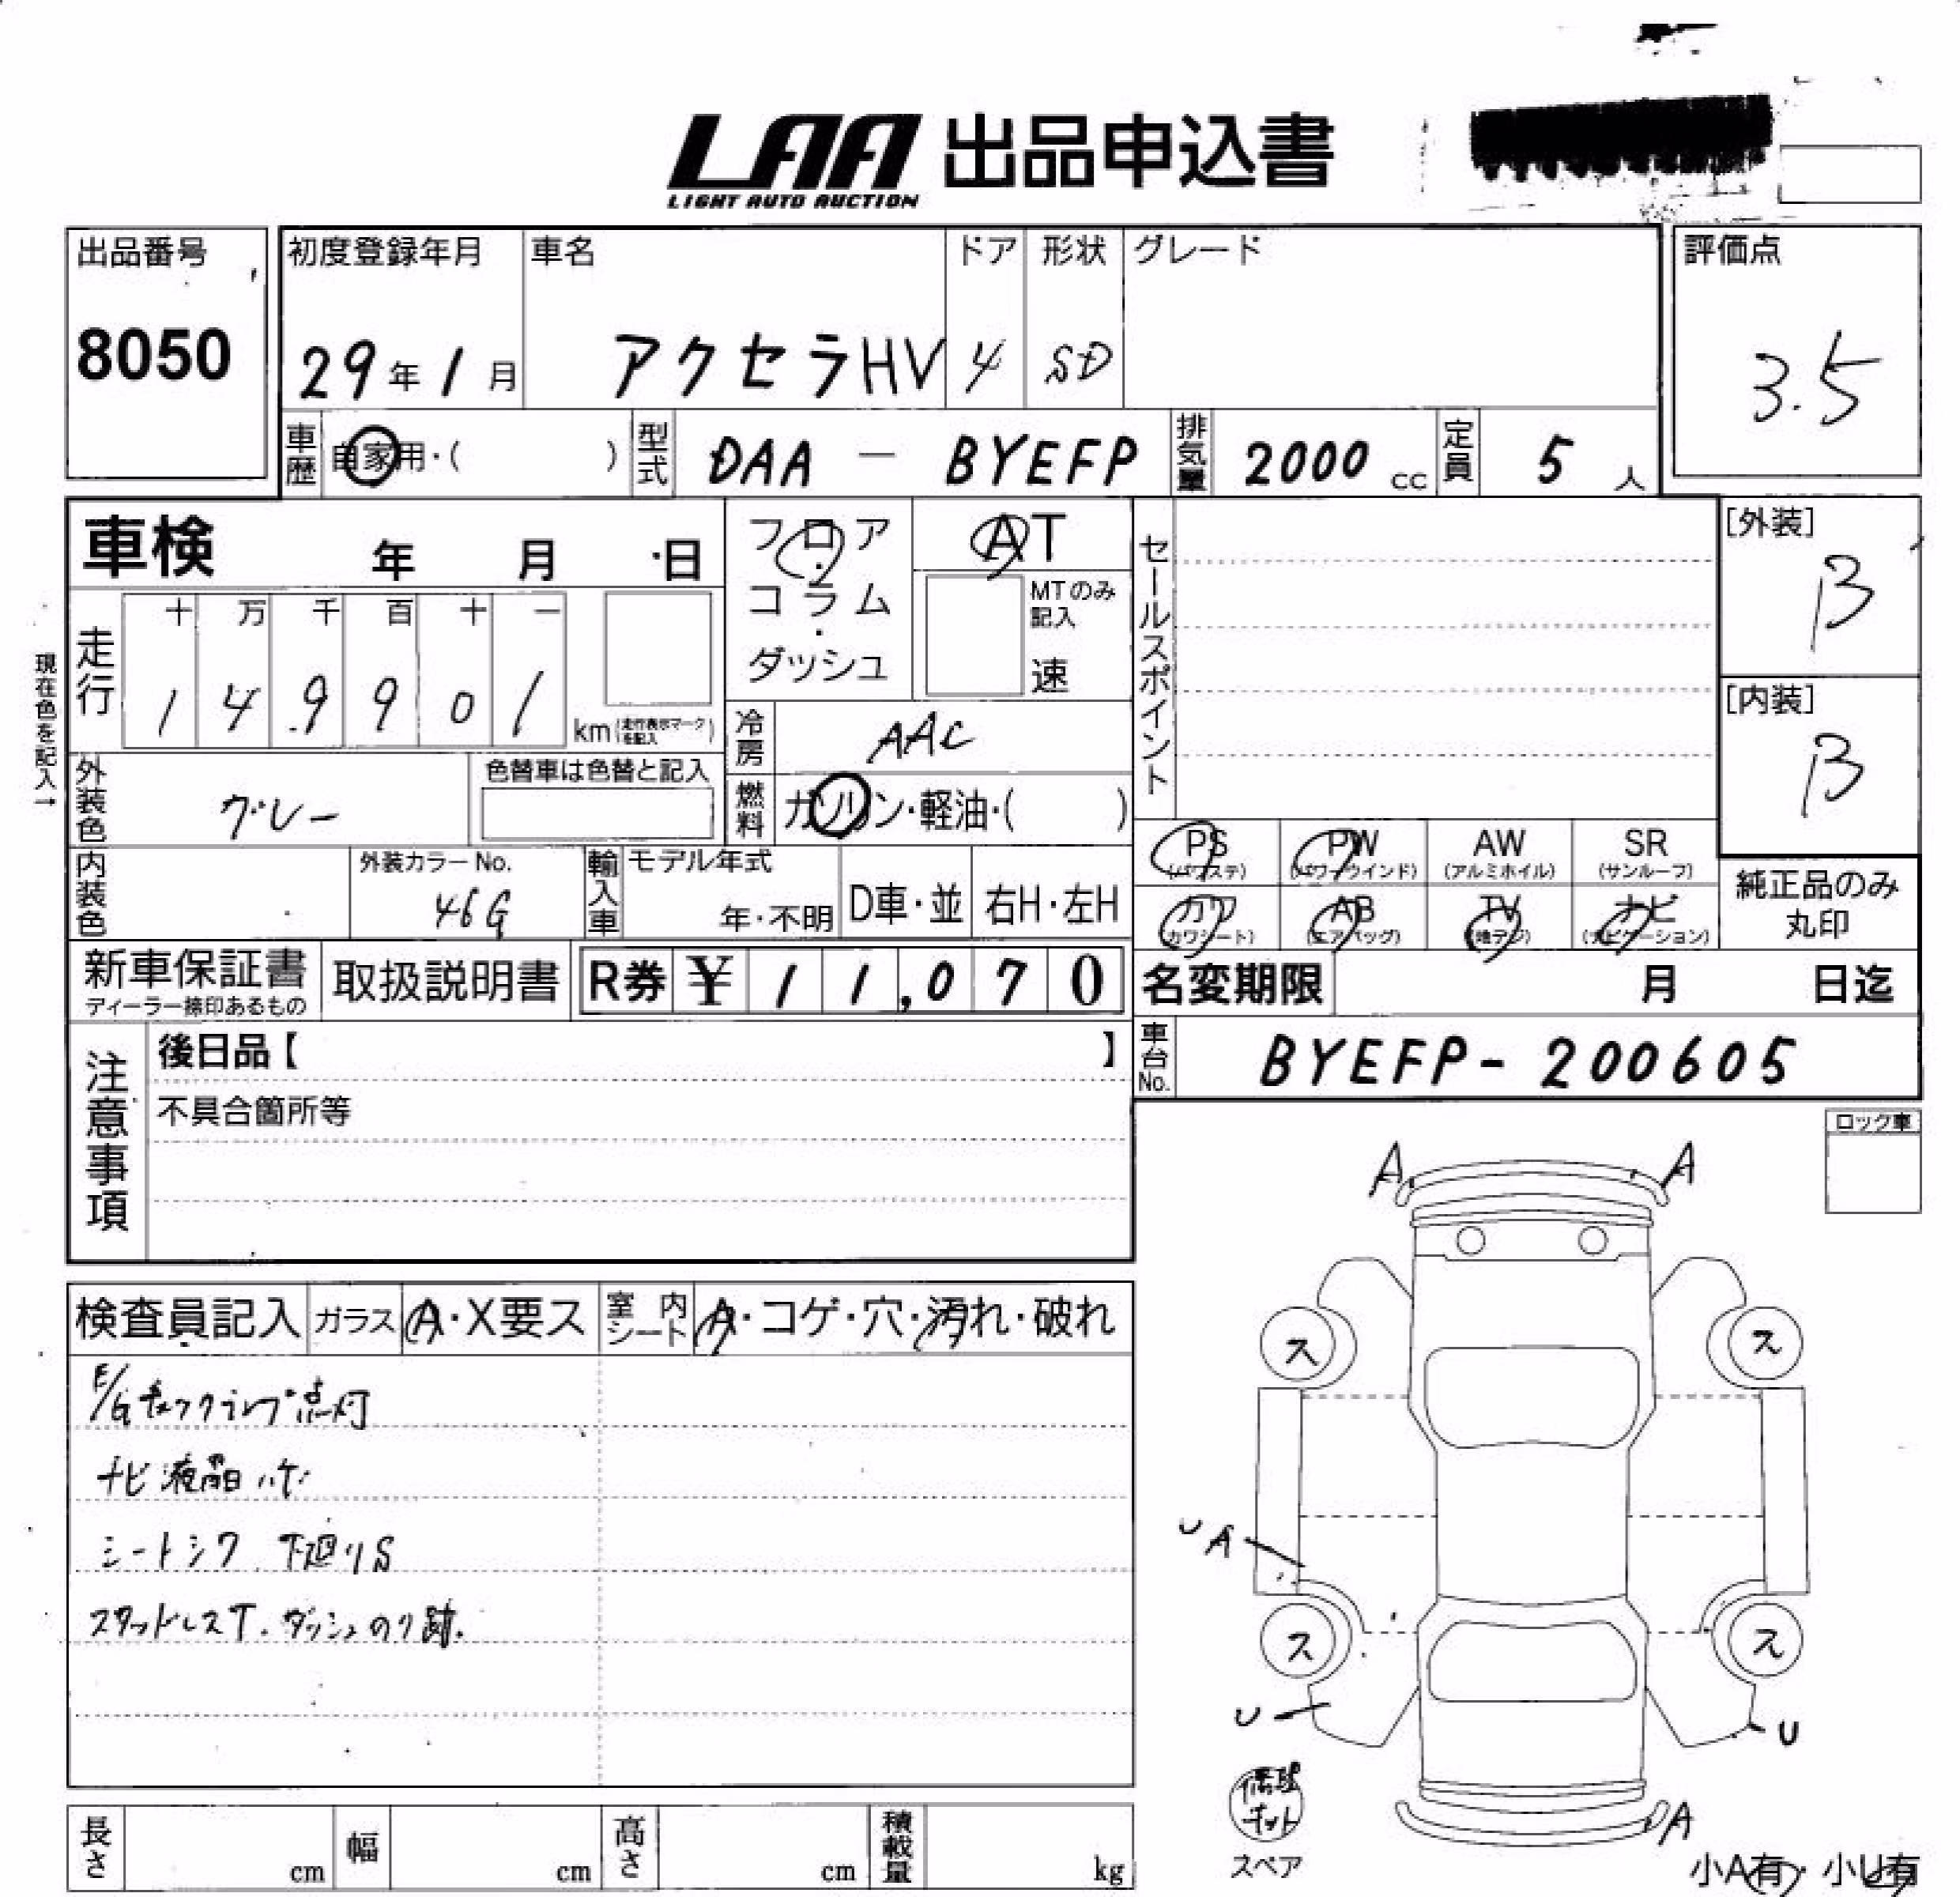 LAA 出品申込書
LIGHT AUTO AUCTION
出品番号
8050
初度登録年月
29年1月
車名
アクセラHV
ドア
4
形状
SD
グレード
評価点
3.5
車歴
自家用・( )
型式
DAA - BYEFP
排気量
2000 cc
定員
5 人
車検 年 月 日
フロア・コラム・ダッシュ
AT
MTのみ記入
速
セールスポイント
[外装]
B
[内装]
B
現在色を記入→
走行
十 万 千 百 十 一
1 4 9 9 0 1
km(走行表示マークを記入)
冷房
AAC
外装色
グレー
色替車は色替と記入
燃料
ガソリン・軽油・( )
PS
(パワステ)
PW
(パワーウインド)
AW
(アルミホイル)
SR
(サンルーフ)
カワ
(カワシート)
AB
(エアバッグ)
TV
(地デジ)
ナビ
(ナビゲーション)
純正品のみ
丸印
内装色
外装カラーNo.
46G
輸入車
モデル年式
年・不明
D車・並
右H・左H
新車保証書
ディーラー捺印あるもの
取扱説明書
R券 ¥ 11,070
名変期限 月 日迄
車台No.
BYEFP-200605
注意事項
後日品【 】
不具合箇所等
ロック車
検査員記入
ガラス
A・X要ス
室内シート
A・コゲ・穴・汚れ・破れ
E/Gチェックランプ点灯
ナビ液晶ハゲ
シートシワ、下廻りS
スタッドレスT.ダッシュのり跡.
A
A
ス
ス
U
A
ス
ス
U
U
A
修理キット
スペア
小A有・小U有
長さ cm
幅 cm
高さ cm
積載量 kg